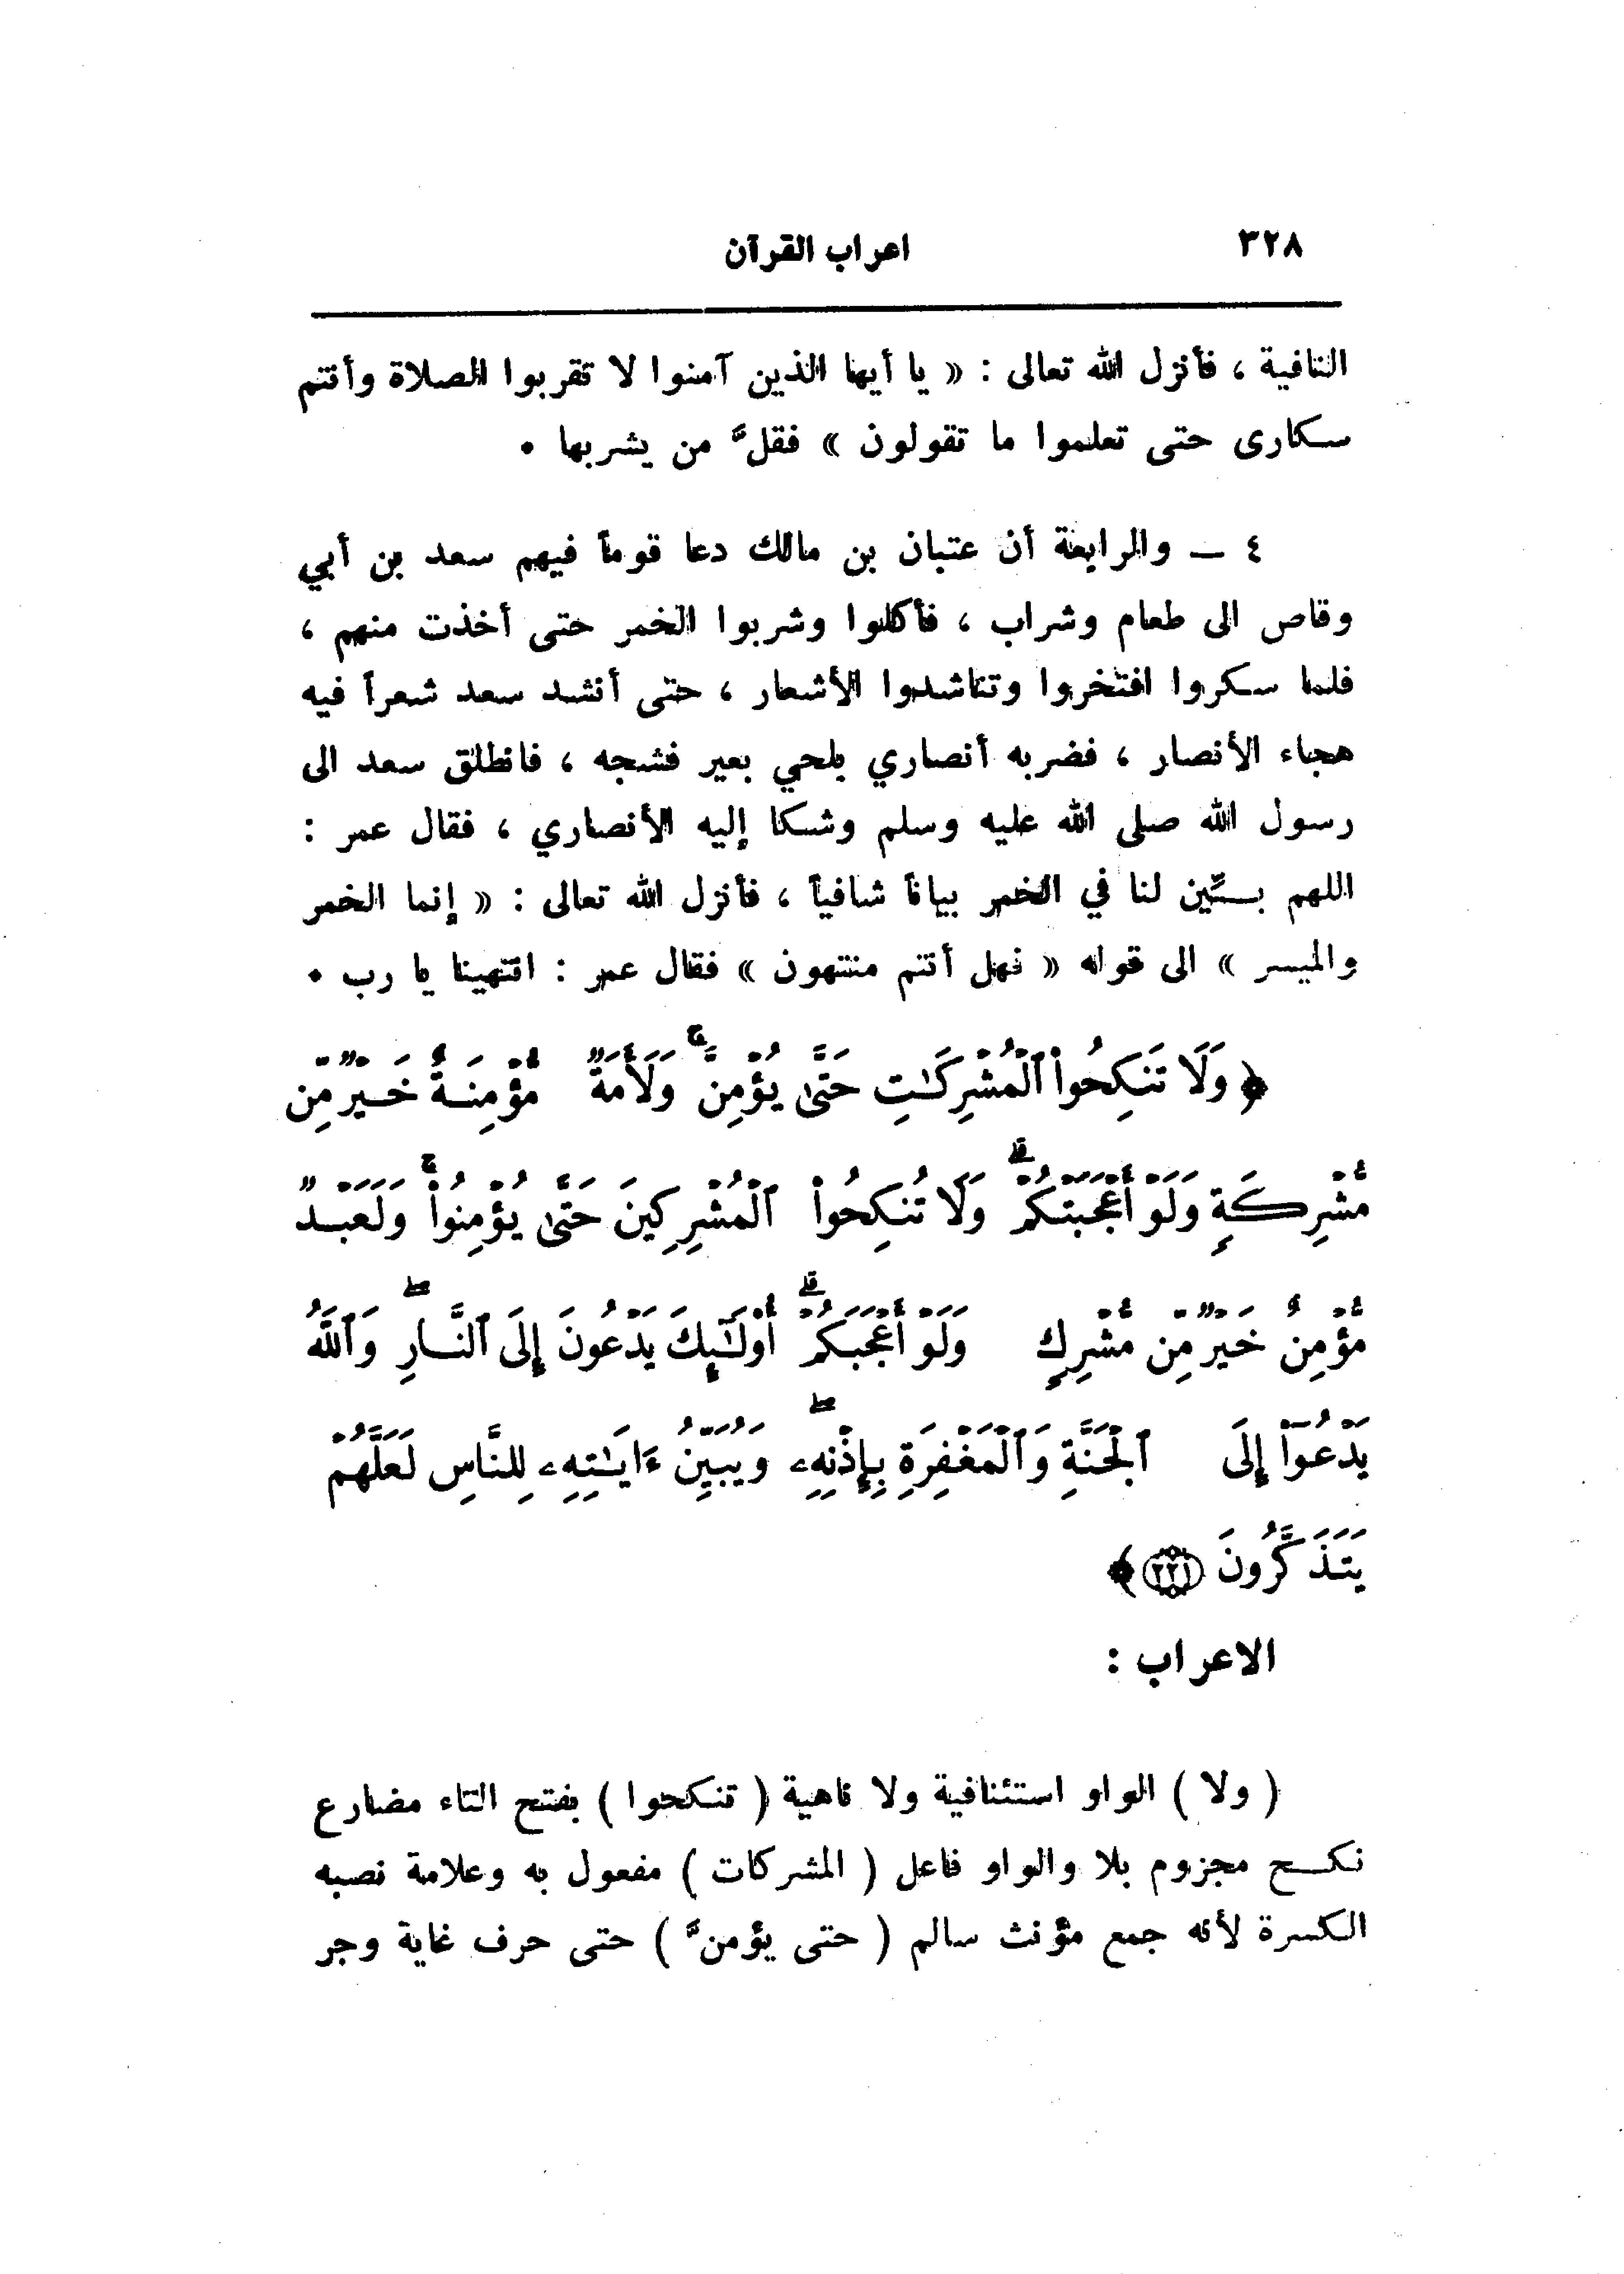 ٣٢٨
اعراب القرآن
النافية ، فأنزل الله تعالى : « يا أيها الذين آمنوا لا تقربوا الصلاة وأنتم
سكارى حتى تعلموا ما تقولون » فقلّ من يشربها ٠
٤ ــ والرابعة أن عتبان بن مالك دعا قوماً فيهم سعد بن أبي
وقاص الى طعام وشراب ، فأكلوا وشربوا الخمر حتى أخذت منهم ،
فلما سكروا افتخروا وتناشدوا الأشعار ، حتى أنشد سعد شعراً فيه
هجاء الأنصار ، فضربه أنصاري بلحي بعير فشجه ، فانطلق سعد الى
رسول الله صلى الله عليه وسلم وشكا إليه الأنصاري ، فقال عمر :
اللهم بيّن لنا في الخمر بياناً شافياً ، فأنزل الله تعالى : « إنما الخمر
والميسر » الى قوله « فهل أنتم منتهون » فقال عمر : انتهينا يا رب ٠
﴿ وَلَا تَنكِحُوا۟ ٱلْمُشْرِكَـٰتِ حَتَّىٰ يُؤْمِنَّ ۚ وَلَأَمَةٌ مُّؤْمِنَةٌ خَيْرٌ مِّن
مُّشْرِكَةٍ وَلَوْ أَعْجَبَتْكُمْ ۗ وَلَا تُنكِحُوا۟ ٱلْمُشْرِكِينَ حَتَّىٰ يُؤْمِنُوا۟ ۚ وَلَعَبْدٌ
مُّؤْمِنٌ خَيْرٌ مِّن مُّشْرِكٍ وَلَوْ أَعْجَبَكُمْ ۗ أُو۟لَـٰٓئِكَ يَدْعُونَ إِلَى ٱلنَّارِ ۖ وَٱللَّهُ
يَدْعُوٓا۟ إِلَى ٱلْجَنَّةِ وَٱلْمَغْفِرَةِ بِإِذْنِهِۦ ۖ وَيُبَيِّنُ ءَايَـٰتِهِۦ لِلنَّاسِ لَعَلَّهُمْ
يَتَذَكَّرُونَ ٢٢١ ﴾
الاعراب :
( ولا ) الواو استئنافية ولا ناهية ( تنكحوا ) بفتح التاء مضارع
نكح مجزوم بلا والواو فاعل ( المشركات ) مفعول به وعلامة نصبه
الكسرة لأنه جمع مؤنث سالم ( حتى يؤمنّ ) حتى حرف غاية وجر